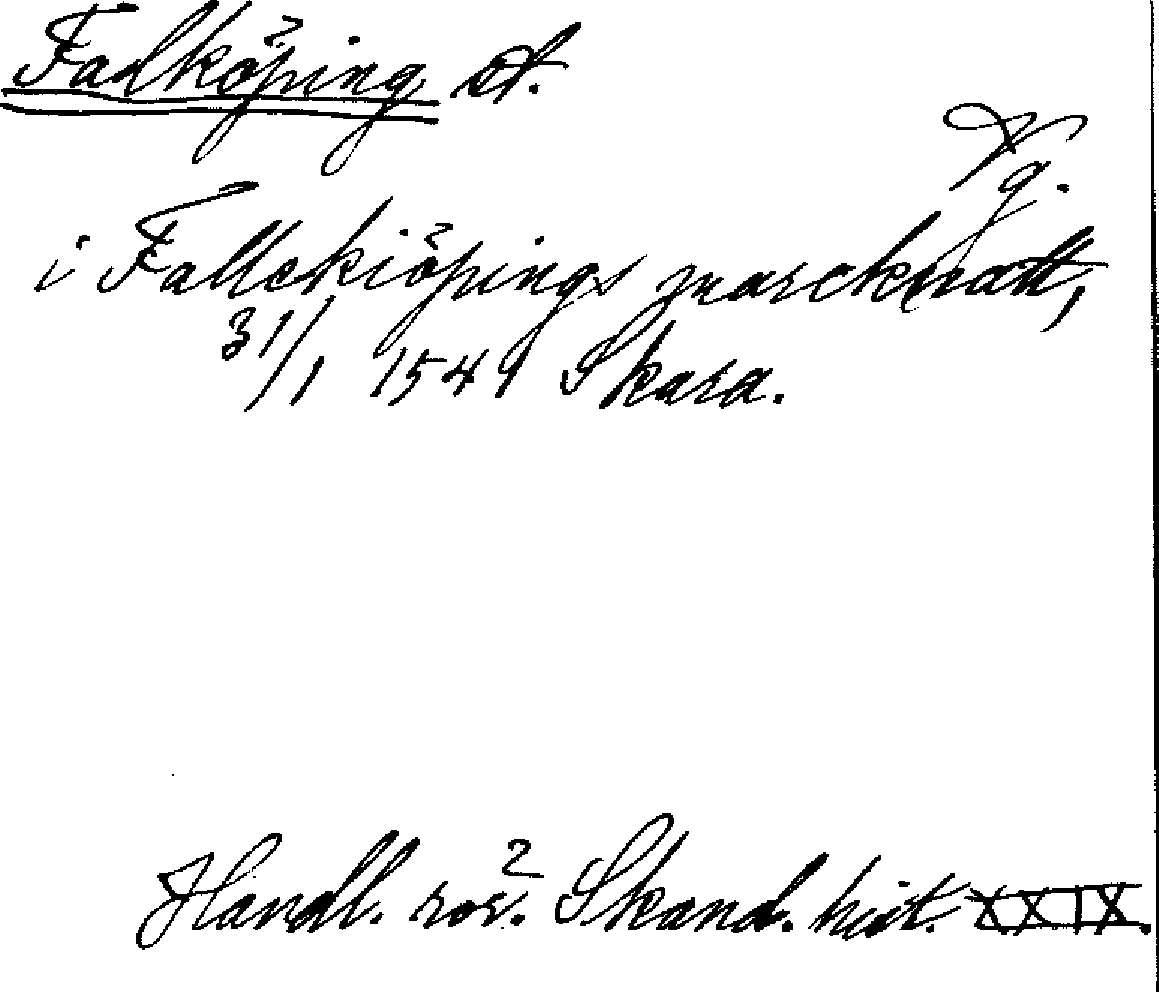 Falköping st.
Vg.
i Fallekiöpings marcknatt,
31/1 1549 Skara.
Handl. rör. Skand. hist. XXIX.